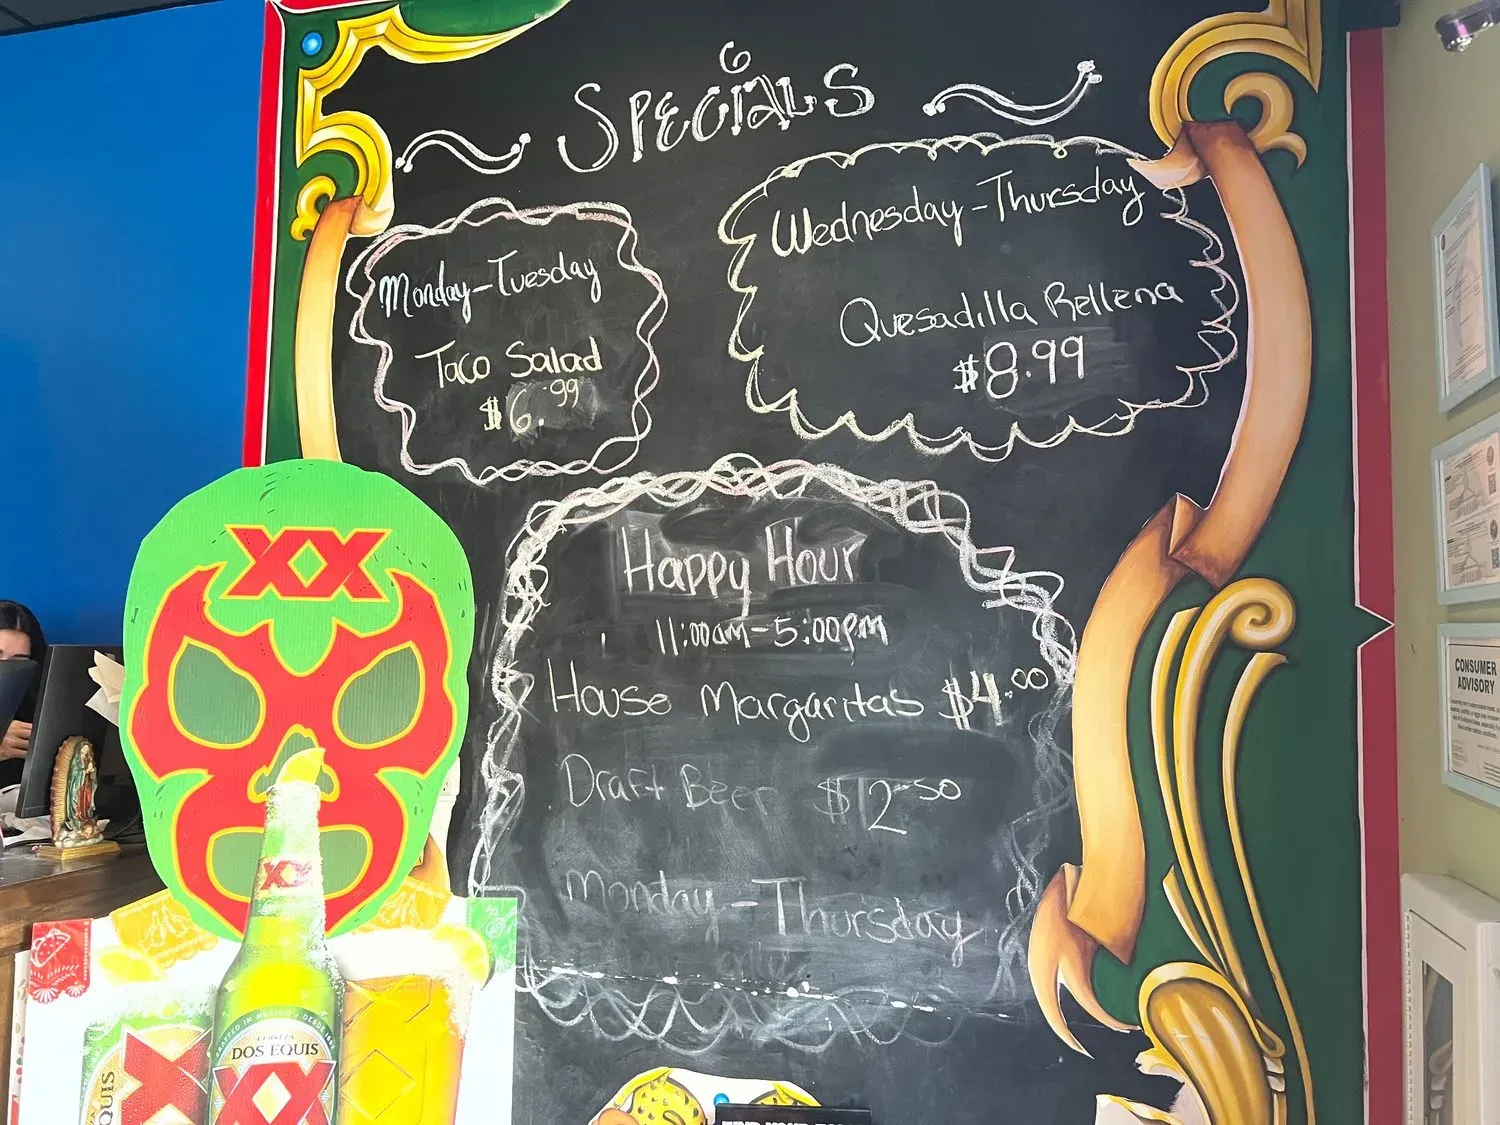 Specials
Monday-Tuesday
Taco Salad
$6.99
Wednesday-Thursday
Quesadilla Rellena
$8.99
Happy Hour
11:00am-5:00pm
House Margaritas $4.00
Draft Beer $2.50
Monday-Thursday
XX
XX
CERVEZA
DOS EQUIS
XX
QUIS
CONSUMER
ADVISORY